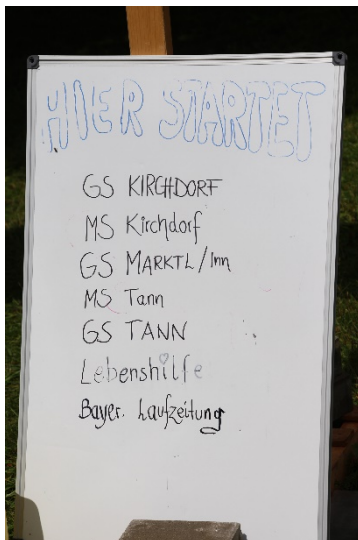 HIER STARTET
GS KIRCHDORF
MS Kirchdorf
GS MARKTL/Inn
MS Tann
GS TANN
Lebenshilfe
Bayer. Laufzeitung